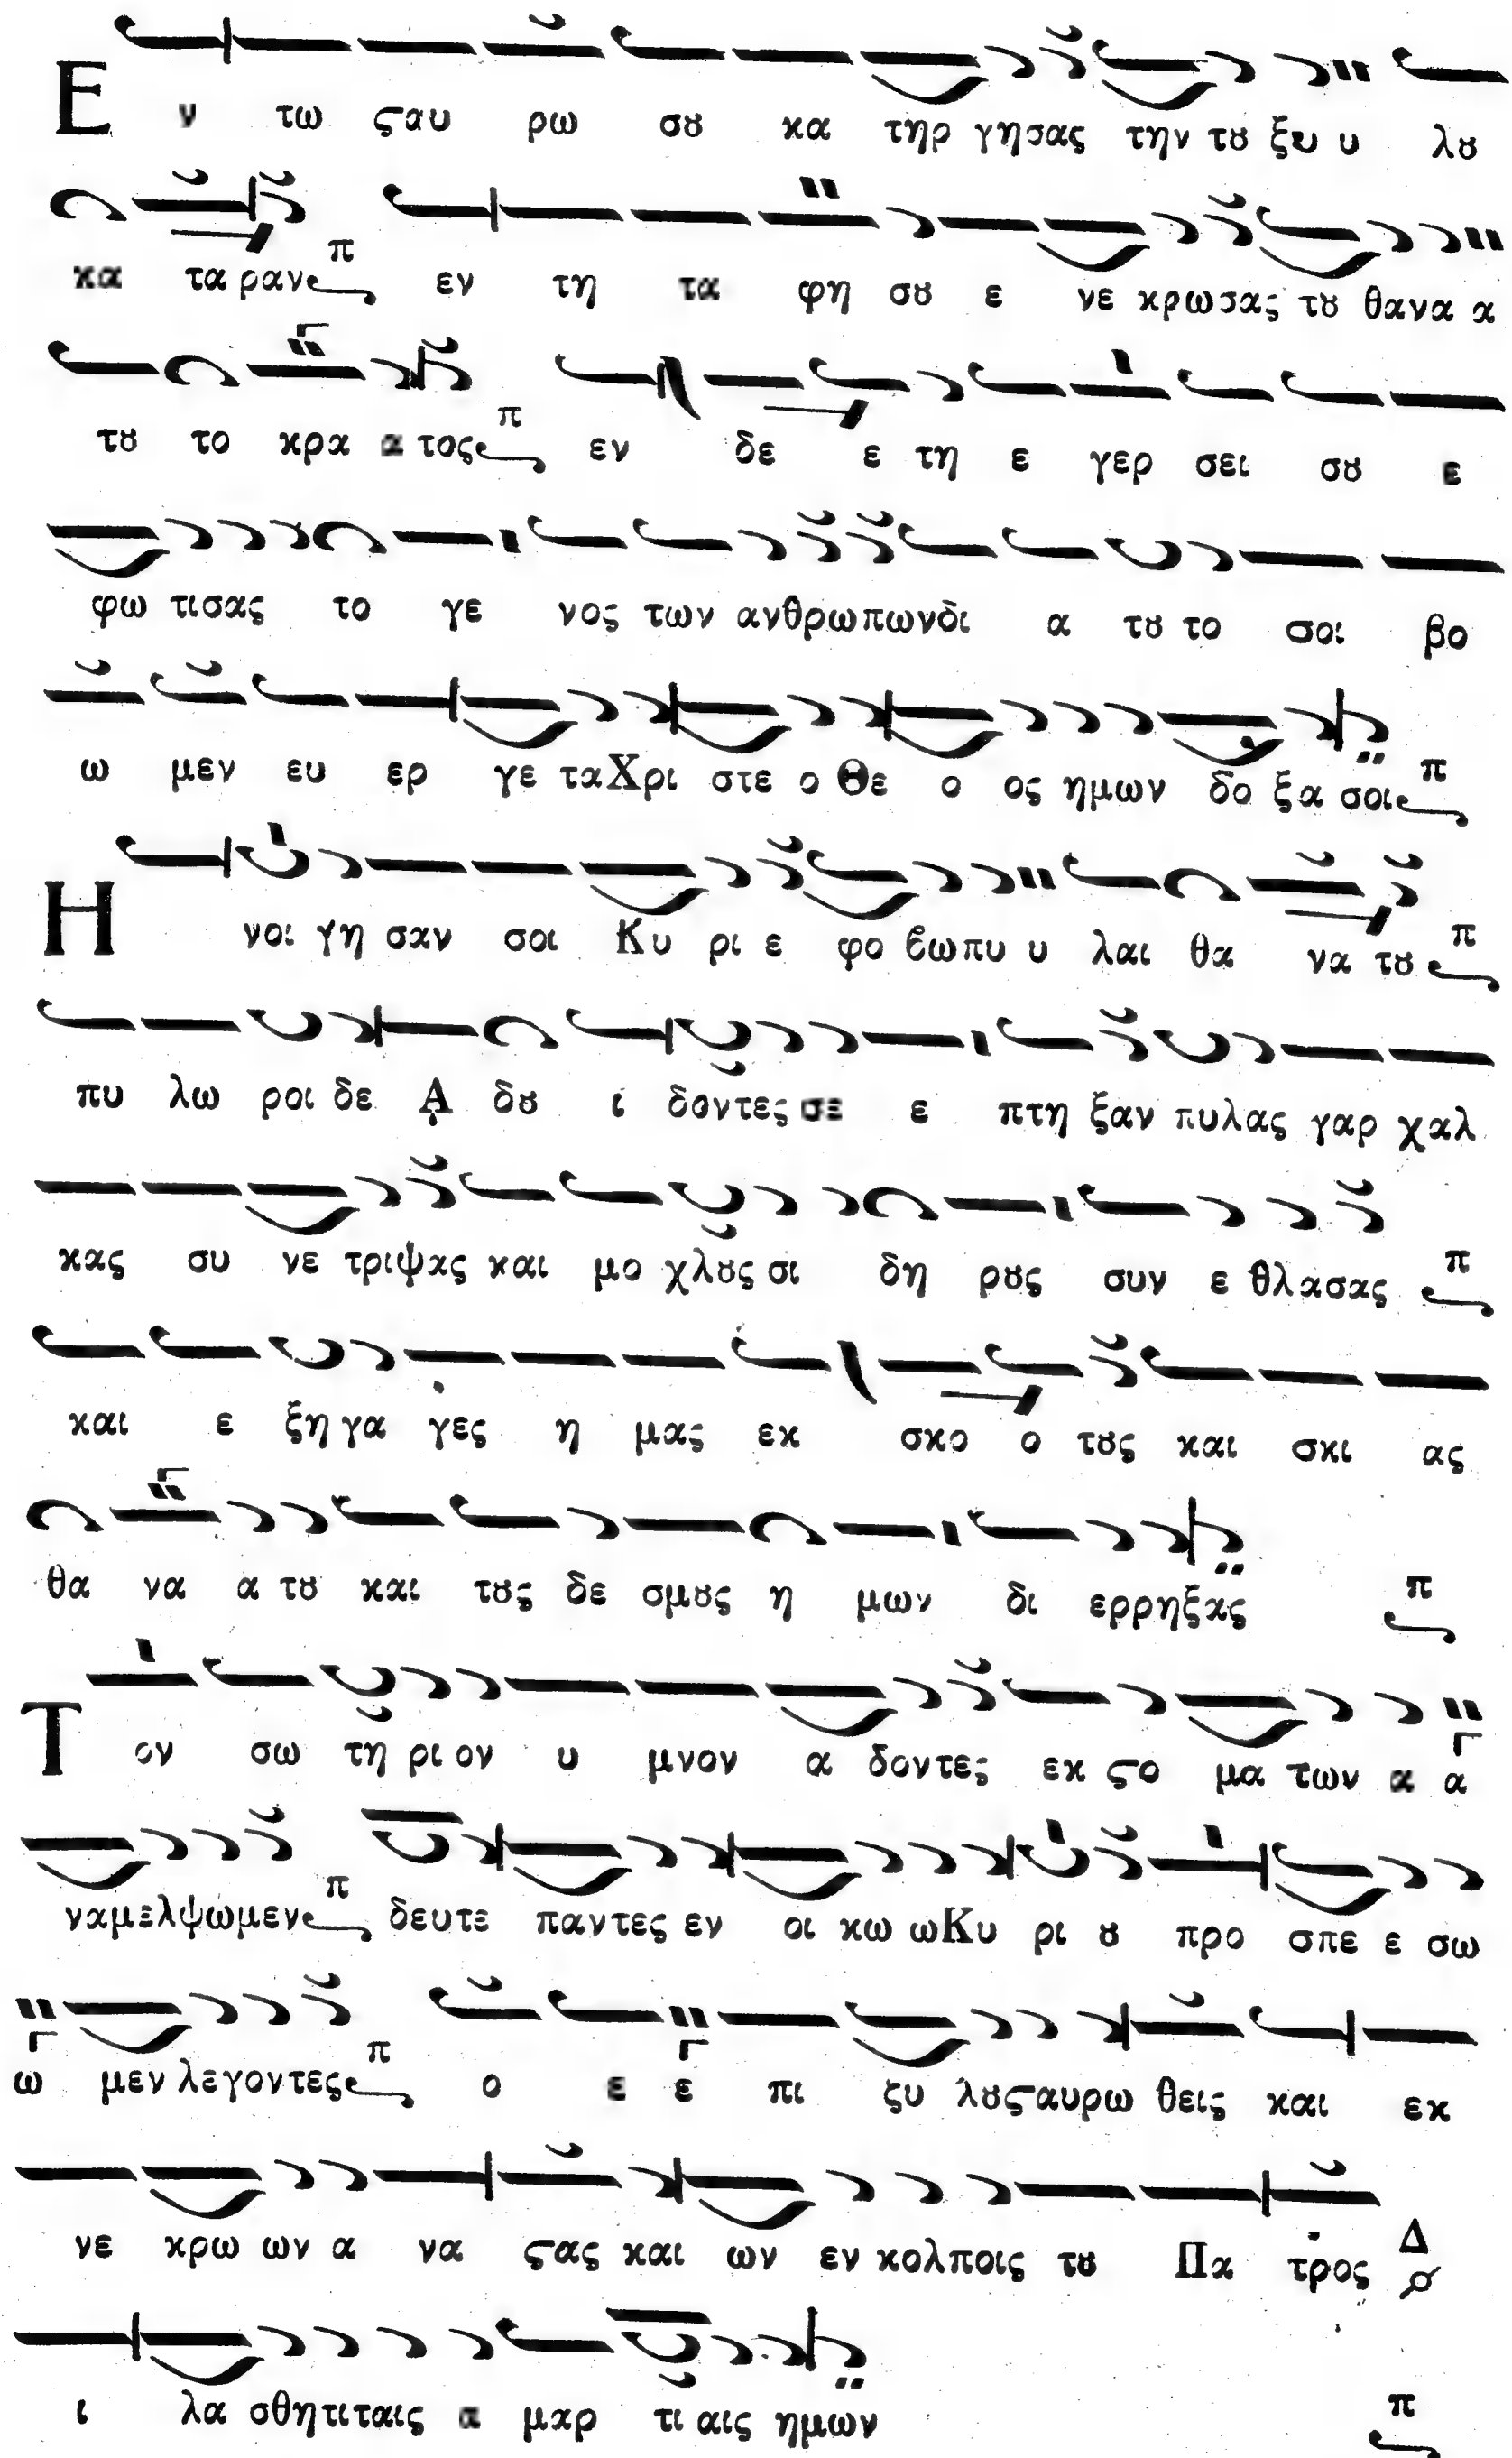 Ε ν τω ϛαυ ρω σȣ κα τηρ γησας την τȣ ξυ υ λȣ
κα τα ραν π εν τη τα φη σȣ ε νε κρωσας τȣ θανα α
τȣ το κρα α τος π εν δε ε τη ε γερ σει σȣ ε
φω τισας το γε νος των ανθρωπωνδι α τȣ το σοι βο
ω μεν ευ ερ γε ταΧρι στε ο Θε ο ος ημων δο ξα σοι π
Η νοι γη σαν σοι Κυ ρι ε φο ϐωπυ υ λαι θα να τȣ π
πυ λω ροι δε Α δȣ ι δοντες σε ε πτη ξαν πυλας γαρ χαλ
κας συ νε τριψας και μο χλȣς σι δη ρȣς συν ε θλασας π
και ε ξη γα γες η μας εκ σκο ο τȣς και σκι ας
θα να α τȣ και τȣς δε σμȣς η μων δι ερρηξας π
Τ ον σω τη ρι ον υ μνον α δοντες εκ ϛο μα των α α
ναμελψωμεν π δευτε παντες εν οι κω ωΚυ ρι ȣ προ σπε ε σω
ω μεν λεγοντες π ο ε ε πι ξυ λȣϛαυρω θεις και εκ
νε κρω ων α να ϛας και ων εν κολποις τȣ Πα τρος Δ
ι λα σθητιταις α μαρ τι αις ημων π